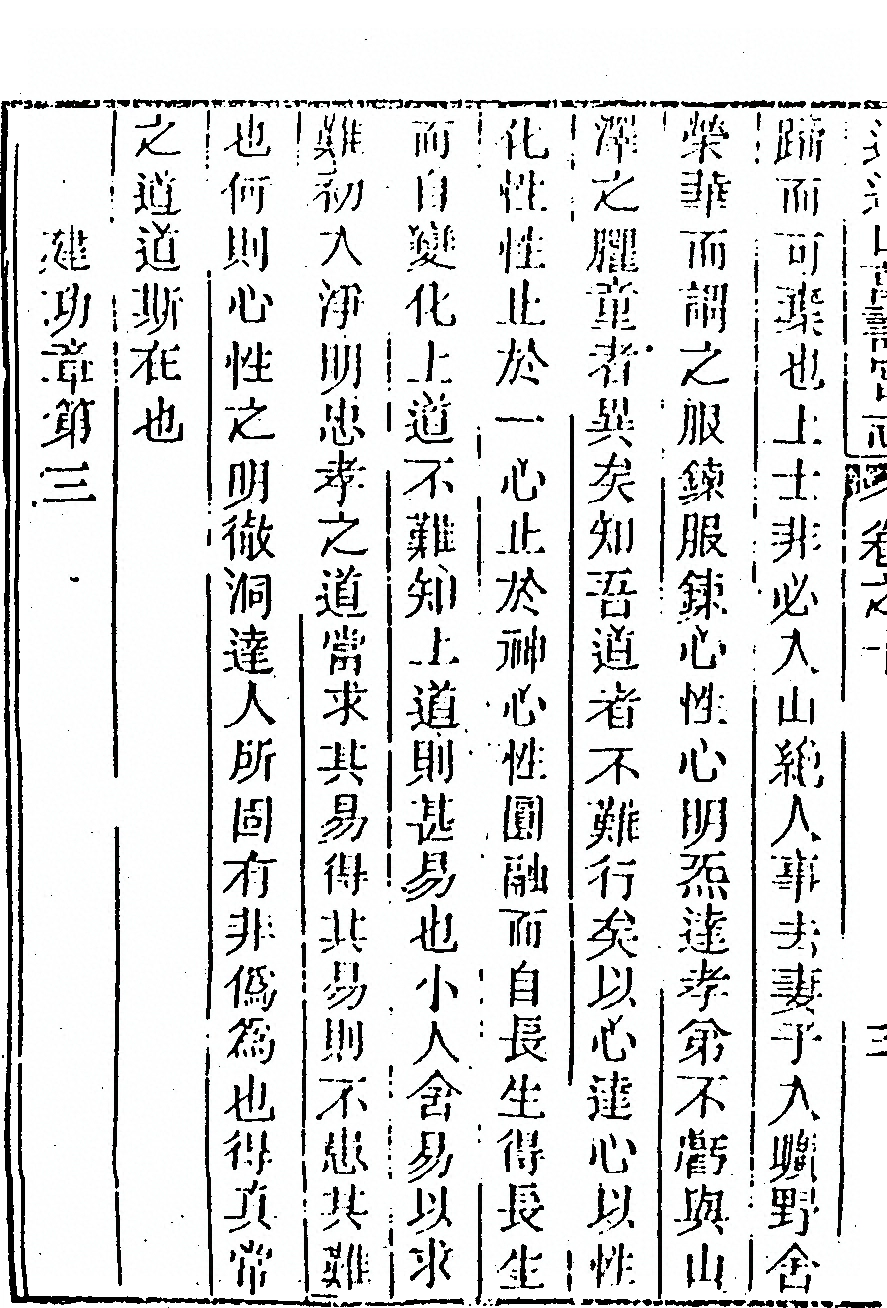 逍遙山萬壽宮志 卷之十 三
蹄而可棄也上士非必入山絕人事去妻子入曠野舍
榮華而謂之服鍊服鍊心性心明炁達孝弟不虧與山
澤之臞童者異矣知吾道者不難行矣以心達心以性
化性性止於一心止於神心性圓融而自長生得長生
而自變化上道不難知上道則甚易也小人舍易以求
難初入淨明忠孝之道當求其易得其易則不患其難
也何則心性之明徹洞達人所固有非僞為也得真常
之道道斯在也
建功章第三